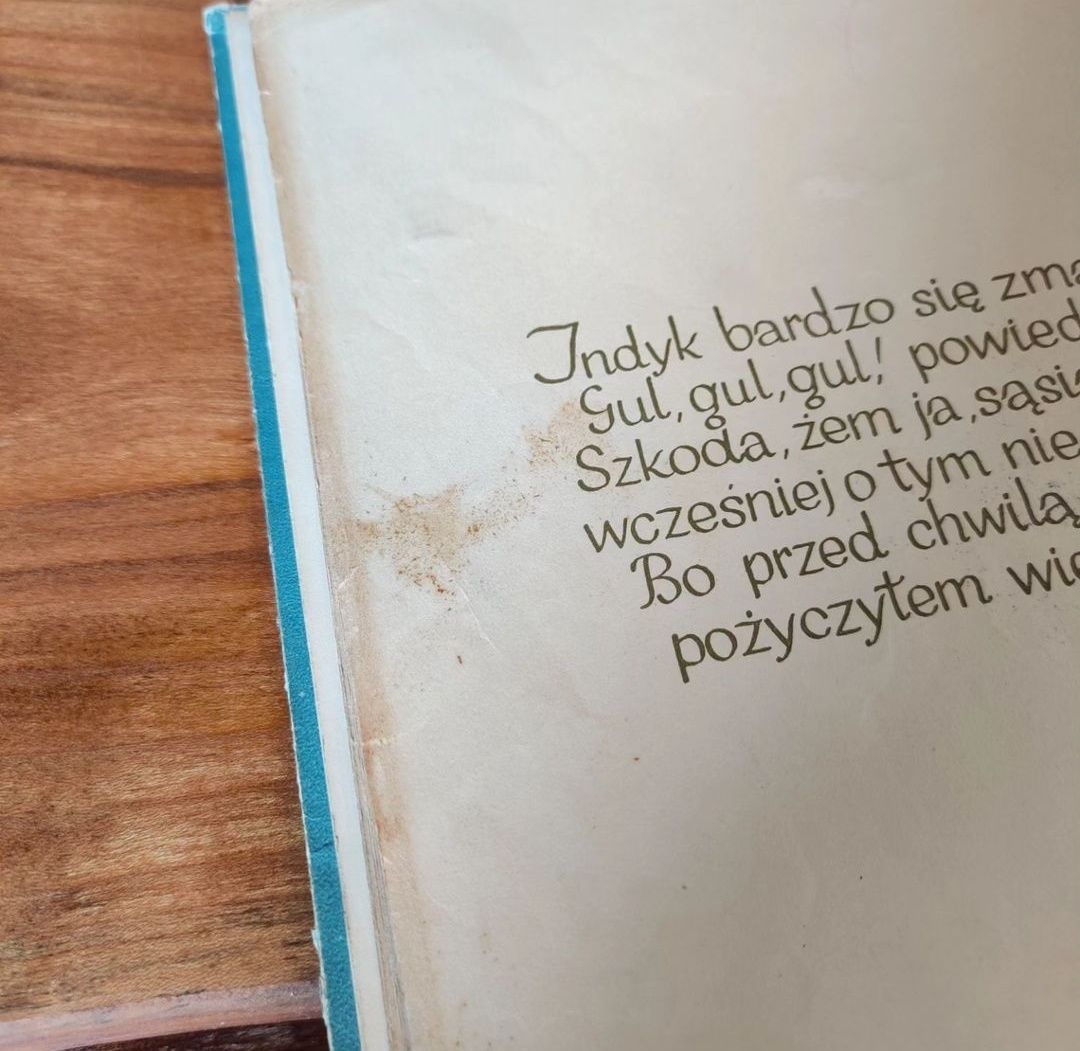 Indyk bardzo się zma
Gul, gul, gul! powied
Szkoda, żem ja, sąsia
wcześniej o tym nie
Bo przed chwilą,
pożyczyłem wię